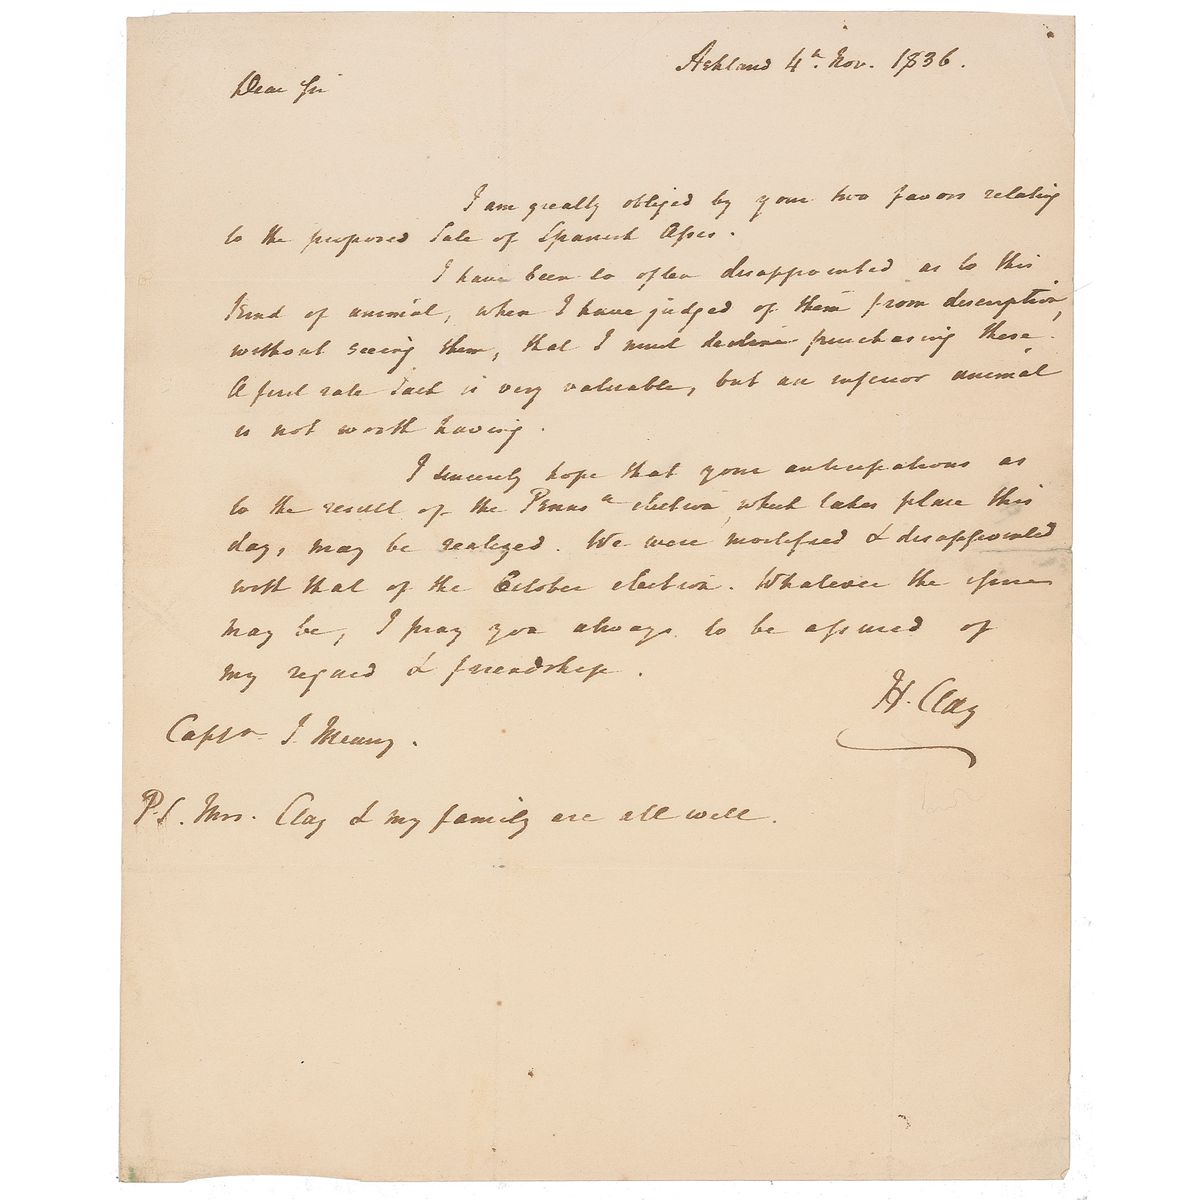 Ashland 4h. Nov. 1836.
Dear Sir
I am greatly obliged by your two favors relating
to the proposed Sale of Spanish Asses.
I have been so often disappointed as to this
kind of animal, when I have judged of them from description,
without seeing them, that I must decline purchasing these.
A first rate Jack is very valuable, but an inferior animal
is not worth having.
I sincerely hope that your anticipations as
to the result of the Pennsa election, which takes place this
day, may be realized. We were mortified & disappointed
with that of the October election. Whatever the issue
may be, I pray you always to be assured of
my regard & friendship.
H. Clay
Capt. J.
P.S. Mrs. Clay & my family are all well.